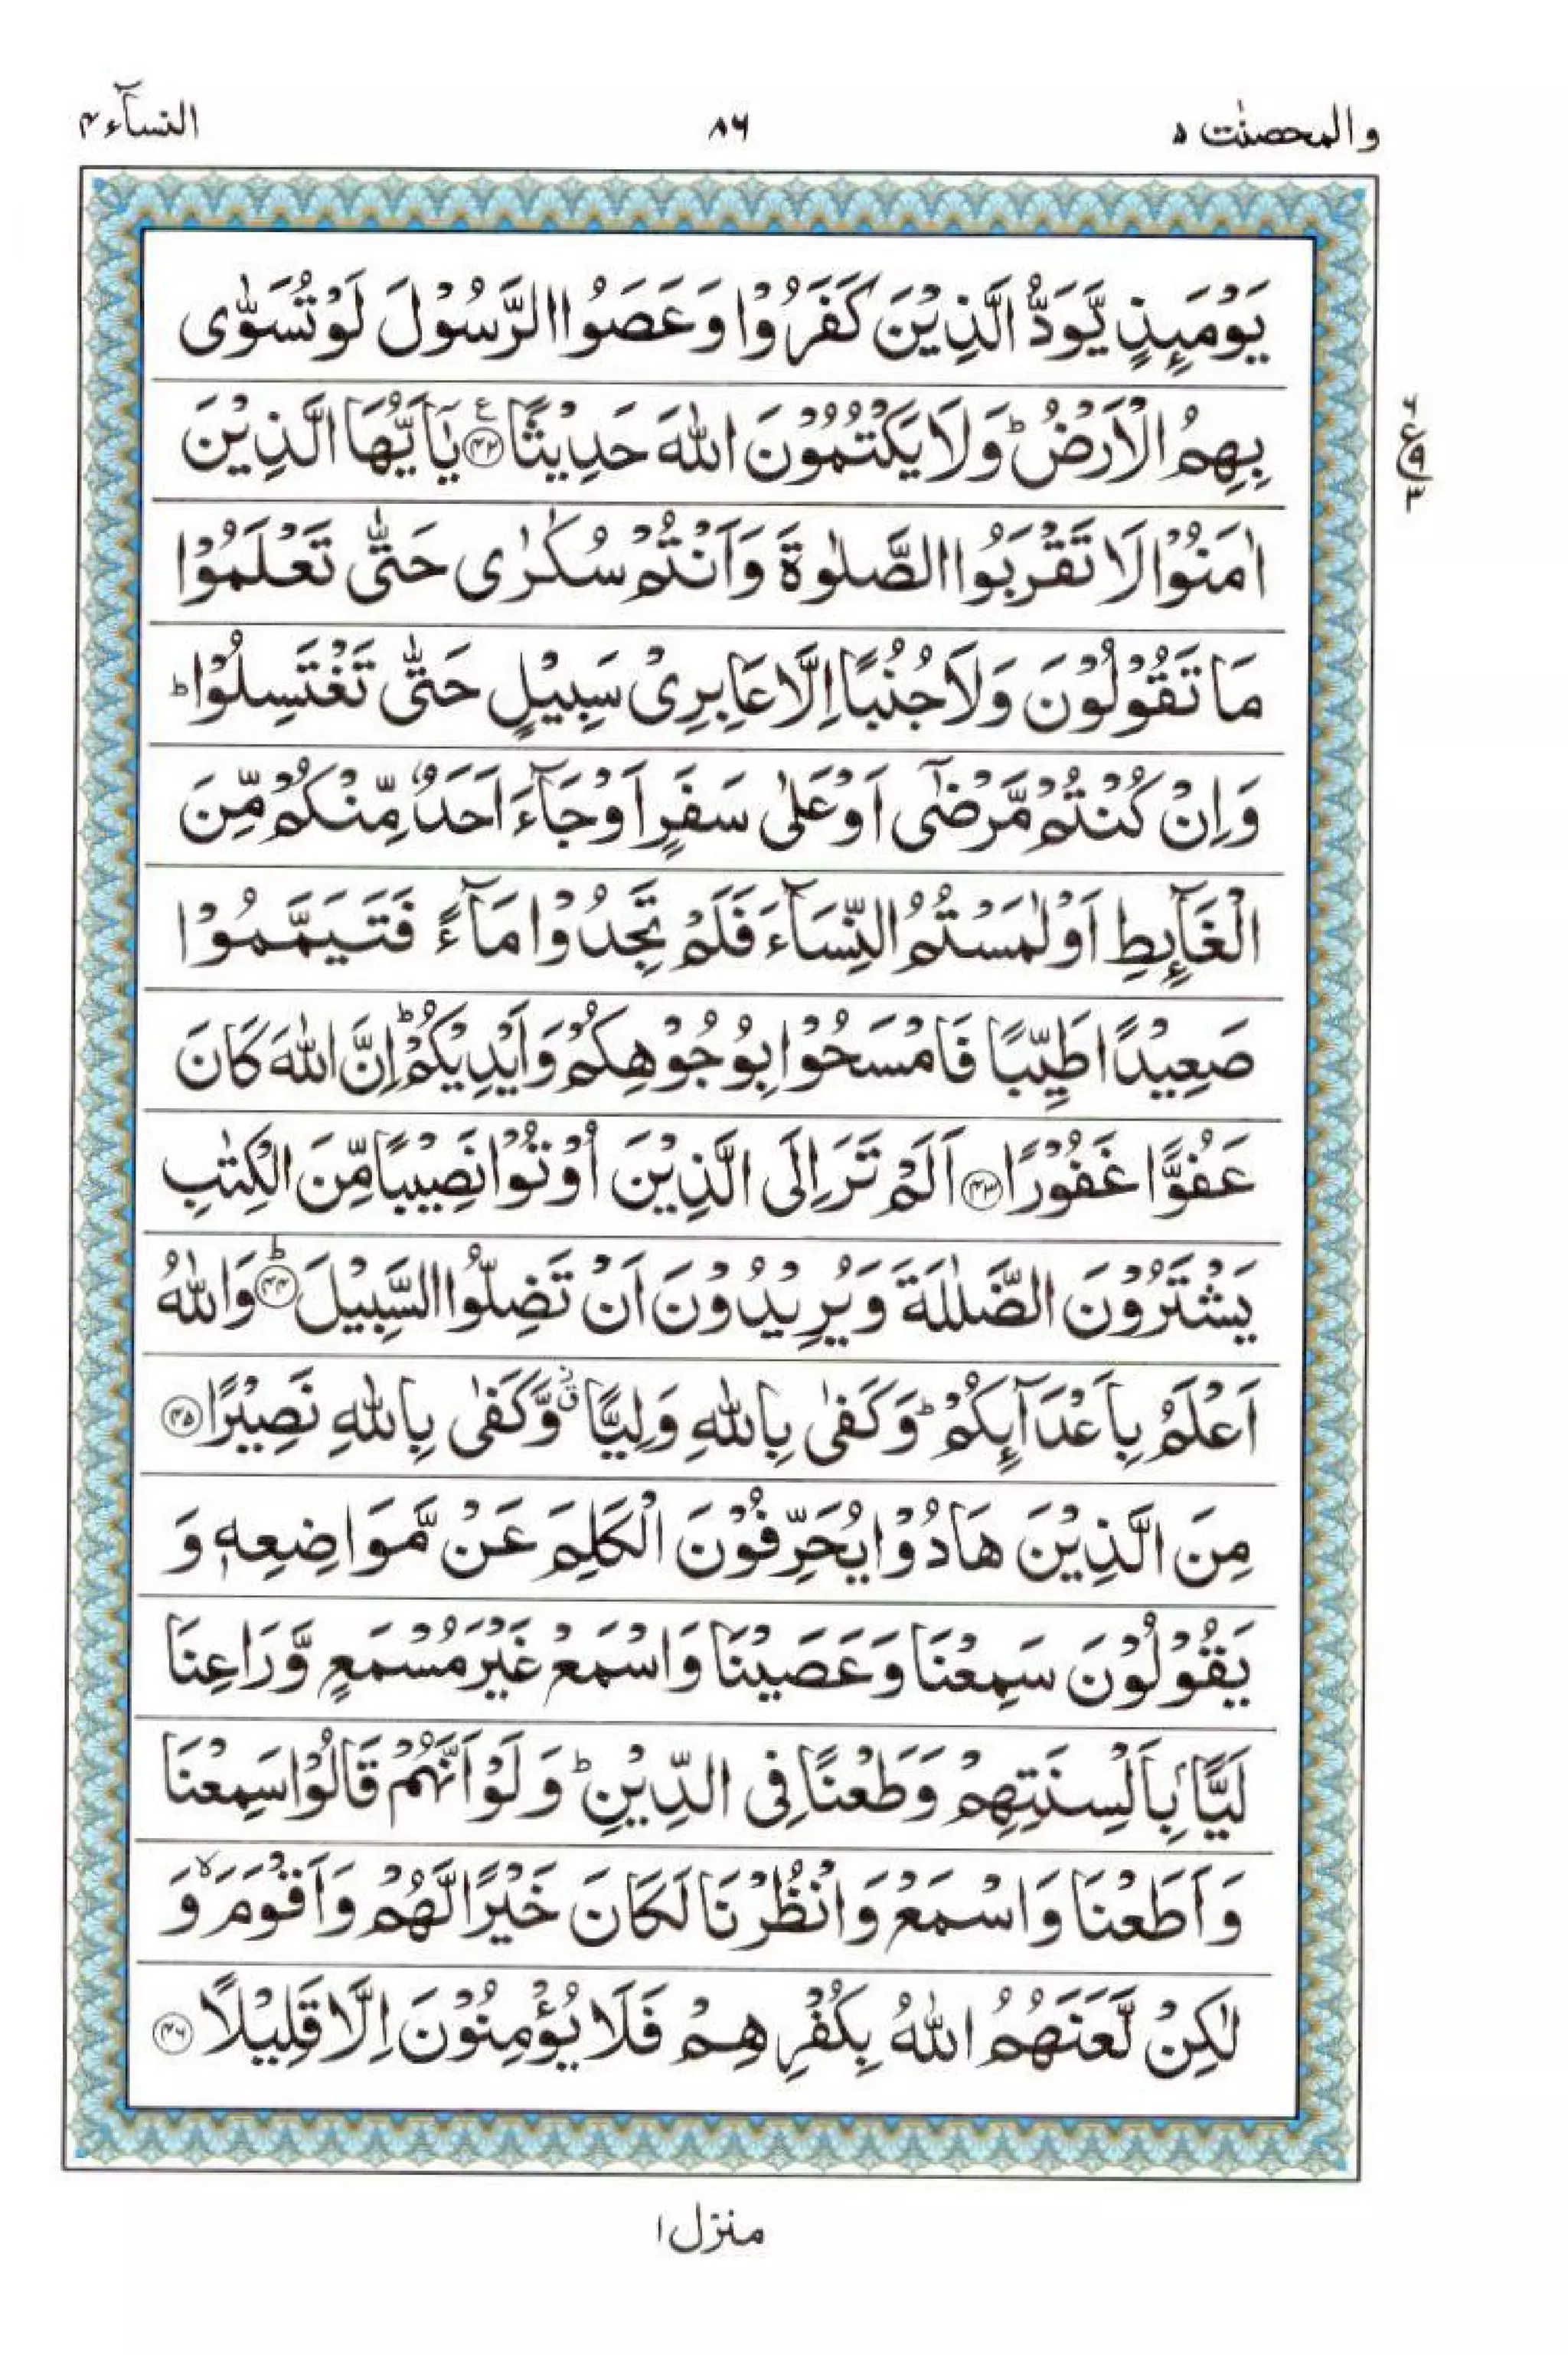 والمحصنٰت ۵
۸۶
النسآء ۴
يَوْمَىِٕذٍ يَّوَدُّ الَّذِيْنَ كَفَرُوْا وَعَصَوُا الرَّسُوْلَ لَوْ تُسَوّٰى
بِهِمُ الْاَرْضُ ؕ وَلَا يَكْتُمُوْنَ اللّٰهَ حَدِيْثًا ﴿۴۲﴾ ع يٰۤاَيُّهَا الَّذِيْنَ
اٰمَنُوْا لَا تَقْرَبُوا الصَّلٰوةَ وَاَنْتُمْ سُكٰرٰى حَتّٰى تَعْلَمُوْا
مَا تَقُوْلُوْنَ وَلَا جُنُبًا اِلَّا عَابِرِيْ سَبِيْلٍ حَتّٰى تَغْتَسِلُوْا ؕ
وَاِنْ كُنْتُمْ مَّرْضٰۤى اَوْ عَلٰى سَفَرٍ اَوْ جَآءَ اَحَدٌ مِّنْكُمْ مِّنَ
الْغَآىِٕطِ اَوْ لٰمَسْتُمُ النِّسَآءَ فَلَمْ تَجِدُوْا مَآءً فَتَيَمَّمُوْا
صَعِيْدًا طَيِّبًا فَامْسَحُوْا بِوُجُوْهِكُمْ وَاَيْدِيْكُمْ ؕ اِنَّ اللّٰهَ كَانَ
عَفُوًّا غَفُوْرًا ﴿۴۳﴾ اَلَمْ تَرَ اِلَى الَّذِيْنَ اُوْتُوْا نَصِيْبًا مِّنَ الْكِتٰبِ
يَشْتَرُوْنَ الضَّلٰلَةَ وَيُرِيْدُوْنَ اَنْ تَضِلُّوا السَّبِيْلَ ؕ﴿۴۴﴾ وَاللّٰهُ
اَعْلَمُ بِاَعْدَآىِٕكُمْ ؕ وَكَفٰى بِاللّٰهِ وَلِيًّا ۙ٘ وَّكَفٰى بِاللّٰهِ نَصِيْرًا ﴿۴۵﴾
مِنَ الَّذِيْنَ هَادُوْا يُحَرِّفُوْنَ الْكَلِمَ عَنْ مَّوَاضِعِهٖ وَ
يَقُوْلُوْنَ سَمِعْنَا وَعَصَيْنَا وَاسْمَعْ غَيْرَ مُسْمَعٍ وَّرَاعِنَا
لَيًّۢا بِاَلْسِنَتِهِمْ وَطَعْنًا فِى الدِّيْنِ ؕ وَلَوْ اَنَّهُمْ قَالُوْا سَمِعْنَا
وَاَطَعْنَا وَاسْمَعْ وَانْظُرْنَا لَكَانَ خَيْرًا لَّهُمْ وَاَقْوَمَ ۙ وَ
لٰكِنْ لَّعَنَهُمُ اللّٰهُ بِكُفْرِهِمْ فَلَا يُؤْمِنُوْنَ اِلَّا قَلِيْلًا ﴿۴۶﴾
ع ۹ ۳
منزل ۱